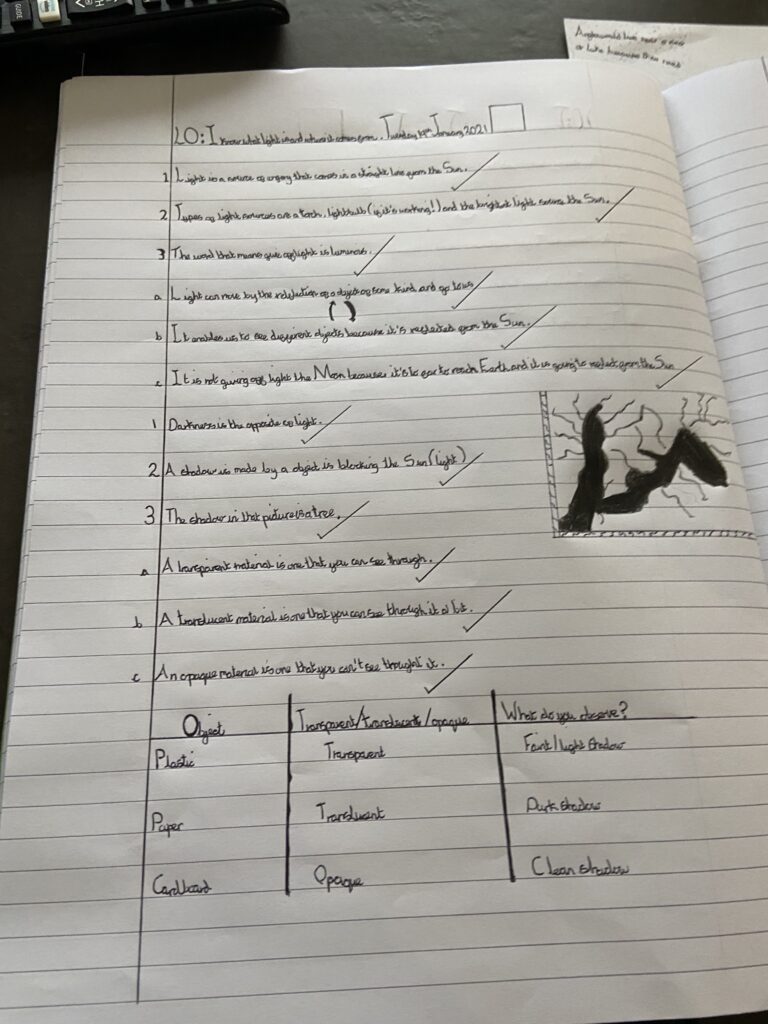 Anglo would live near a river
or lake because they need
LO: I know what light is and where it comes from. Tuesday 19th January 2021
1 Light is a source of energy that comes in a straight line from the Sun.
2 Types of light sources are a torch, lightbulb (if it's working!) and the brightest light source the Sun.
3 The word that means give off light is luminous.
a Light can move by the reflection of a object of some kind and
b It enables us to see different objects because it's reflected from the Sun.
c It is not giving off light the Moon because it's to far to reach Earth and it is going to reflect from the Sun
1 Darkness is the opposite of light.
2 A shadow is made by a object is blocking the Sun (light)
3 The shadow in that picture is a tree.
a A transparent material is one that you can see through.
b A translucent material is one that you can see through it a bit.
c An opaque material is one that you can't see thought it.
Object Transparent/translucent/opaque What do you observe?
Plastic Transparent Faint/light shadow
Paper Translucent Dark shadow
Cardboard Opaque Clear shadow